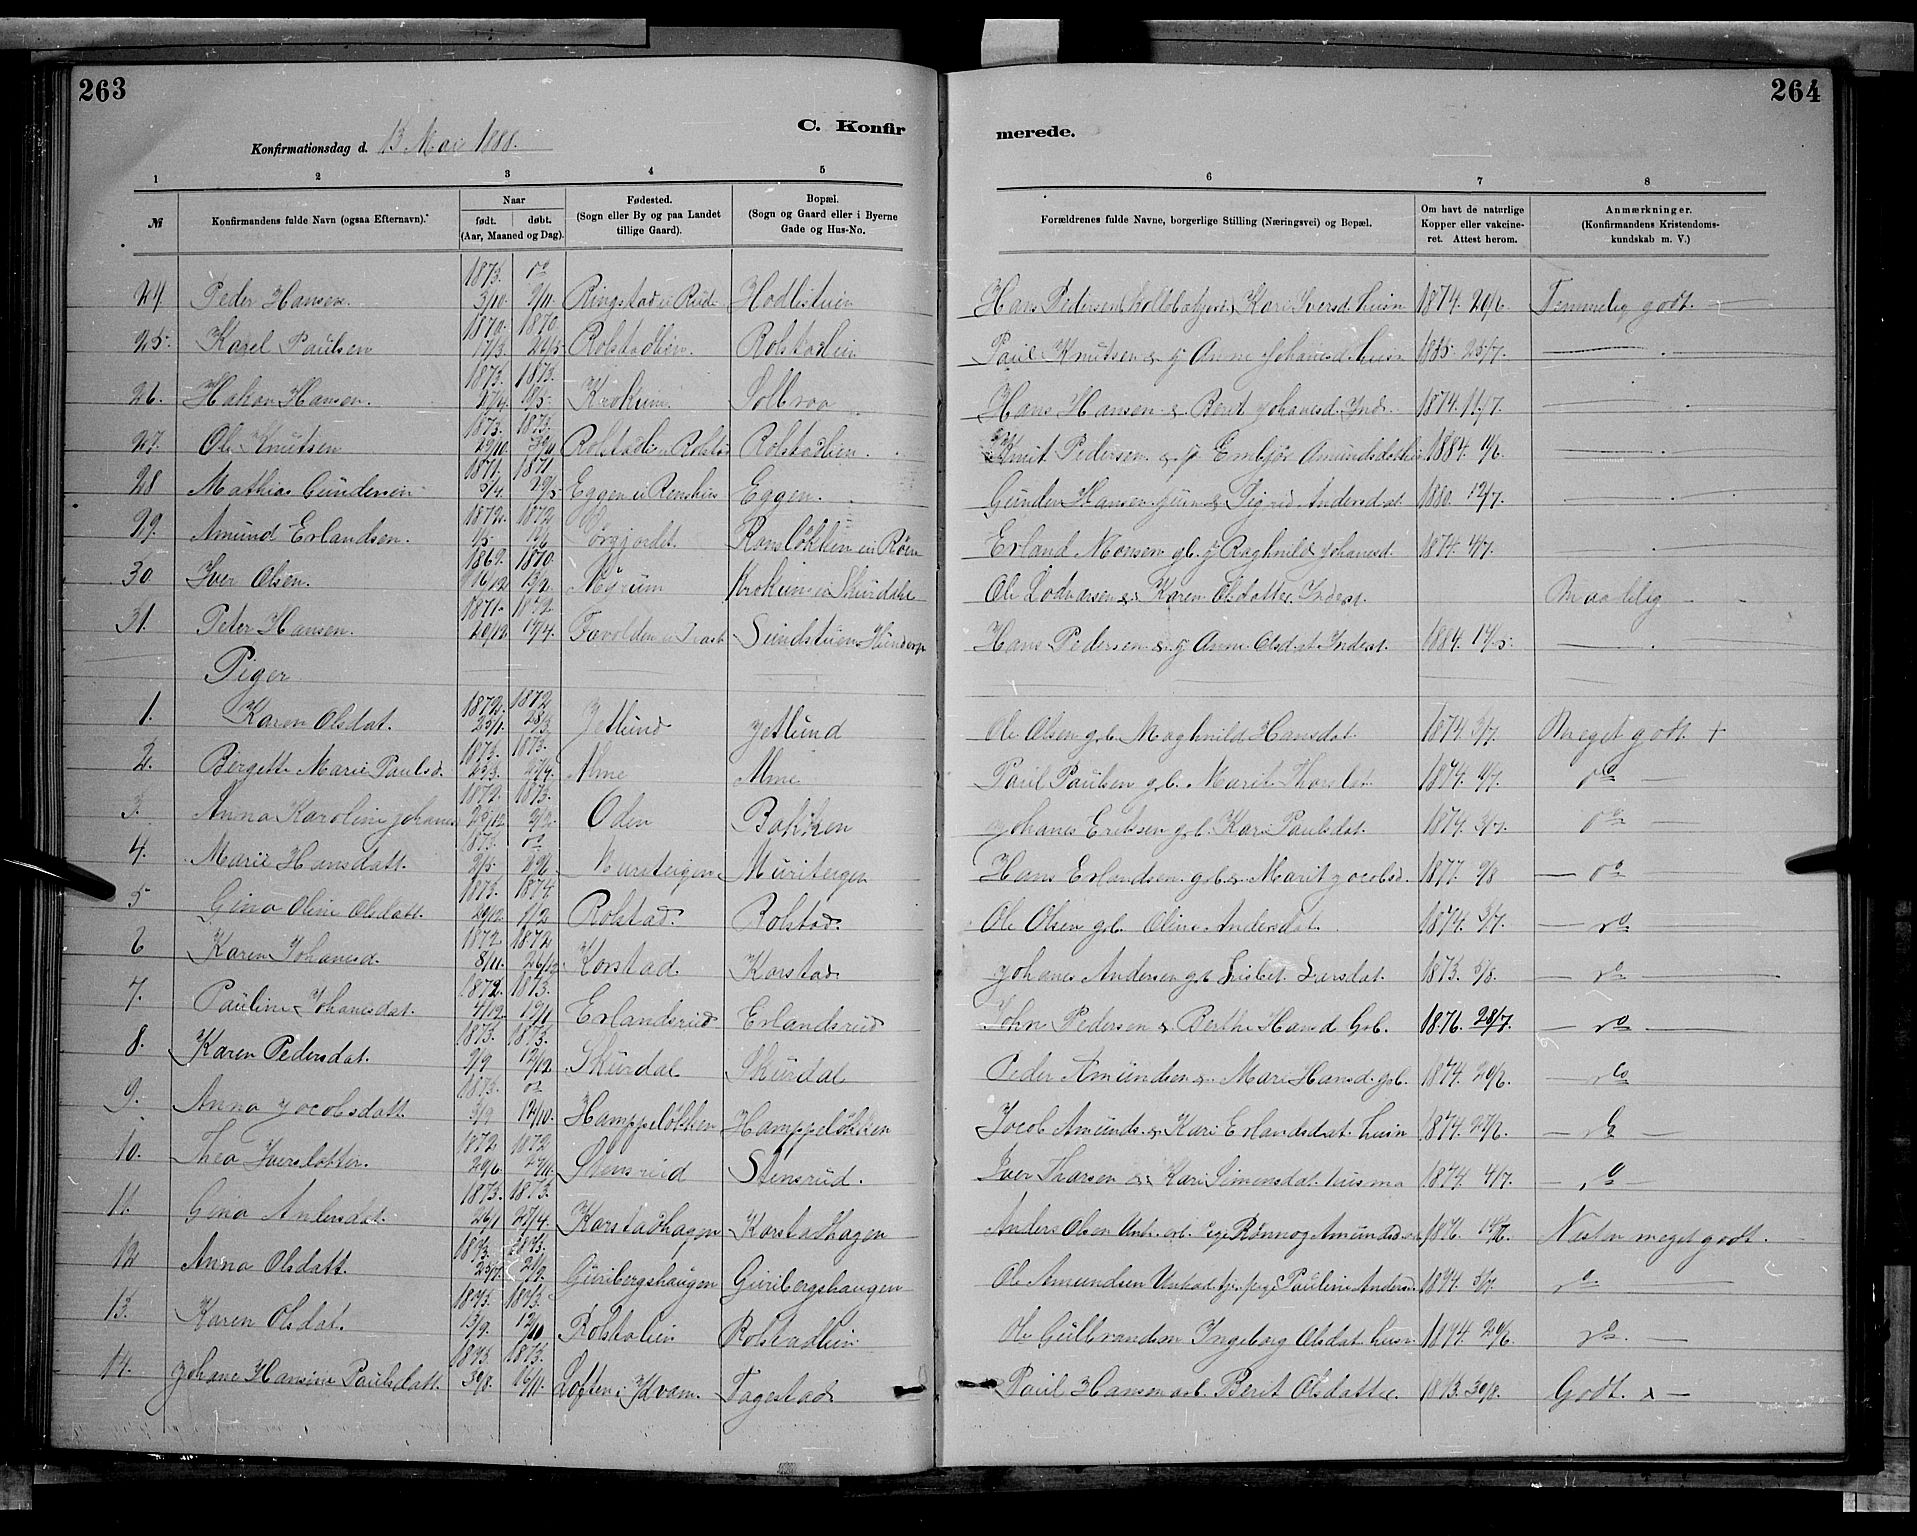 263
264
C. Konfir
merede.
Konfirmationsdag d. 13 Mai 1888.
1 2 3 4 5 6 7 8
№ Konfirmandens fulde Navn (ogsaa Efternavn). Naar født. døbt. (Aar, Maaned og Dag). Fødested. (Sogn eller By og paa Landet tillige Gaard). Bopæl. (Sogn og Gaard eller i Byerne Gade og Hus-No. Forældrenes fulde Navne, borgerlige Stilling (Næringsvei) og Bopæl. Om havt de naturlige Kopper eller vakcineret. Attest herom. Anmærkninger. (Konfirmandens Kristendomskundskab m. V.)
24 Peder Hansen. 1873. 3/10. do 2/11. Ringstad Hans Pedersen Kari Iversd husm 1874. 29/6. Temmelig godt.
25. Karel Paulsen 1870. 17/3. 1870. Rolstadlien. Rolstadlien Paul Knutsen & Anne Johanesd. husm 1885 25/7.
26. Hakon Hansen. 1873. 1873. 18/5. Krokum. Solbraa Hans Hansen & Berit Johanesd. Ind. 1874. 11/7.
27. Ole Knutsen 1873. 29/10. 1873. Rolstad Rolstadlien. Knut Pedersen & Embjør Amundsd. 1884.
28 Mathias Gundersen 1871. 5/4. 1871 29/5 Eggen Eggen. Gunder Hansen & Sigrid Andersdat 1880. 12/7.
29. Amund Erlandsen. 1872. 1/5. 1872 Forgjordet. Ronsløkken Erland Monsen gb. Raghnild Johanesd. 1874. 4/7.
30. Iver Olsen. 1869. 16/12. 1870. 13/2. Krokum i Skurdahl Ole Karen Olsdatter Inderst. Maadelig
31. Peter Hansen. 1871. 29/12. 1872 17/4. Sundstuen Hundorp Hans Pedersen & Anne Olsdat Inderst. 1884. 14/5.
Piger
1. Karen Olsdat. 1872. 25/1. 1872 28/3 Jetlund Jetlund Ole Olsen gb. Maghnild Hansdat. 1874. 3/7. Meget godt. +
2. Bergette Marie Paulsd. 1873. 23/3. 1873. 27/4. Alme Alme Paul Paulsen gb. Marit 1874. 4/7. do
3. Anna Karoline Johanes 1872. 1873. Oden Bakken Johanes Eriksen gb. Kari Paulsdat. 1874. 3/7. do
4. Marie Hansdatt. 1873. 2/5. do 29/6 Muriteigen Muriteigen Hans Erlandsen gb. & Marit Jacobsd. 1877. 9/8 do
5 Gina Oline Olsdatt. 1873. 29/12. 1874 1/2 Rolstad. Rolstad. Ole Olsen gb. Oline Andersdat. 1874. 3/7. do
6 Karen Johanesd. 1872. 8/11. 1872 26/12 Korstad. Korstad Johanes Andersen gb. Lisbet 1873. 5/8. do
7. Pauline Johanesdat. 1872. 4/12. 1873. 19/1 Erlandsrud Erlandsrud John Pedersen & Berthe Hansd. Gb. 1876. 28/7. do
8. Karen Pedersdat. 1873. 9/9 1873. 12/12. Skurdal Skurdal Peder Amundsen & Mari Hansd. gb. 1874. 29/6. do
9. Anna Jacobsdatt. 1873. 3/9 do 12/10. Hamppeløkken Hamppeløkken Jacob Amunds. & Kari Erlandsdat. husm 1874. 27/6. do
10. Thea Iversdatter. 1872 29/6 1872. Stensrud Stensrud. Iver Tharsen & Kari Simensdat. husma 1874. 4/7. do
11. Gina Andersdat. 1873. 26/1 1873. 27/4. Korstadhagen Korstadhagen Anders Olsen Rønnog Amundsd 1876. Næsten meget godt.
12 Anna Olsdatt. 1873. 1873. Guribergshaugen Guribergshaugen Ole Amundsen Pauline Andersd 1874. 3/7. do
13. Karen Olsdat. 1873. 13/9. 1873. 12/10 Rolstadlien Rolstadlien Ole Gulbrandsen Ingeborg Olsdat. husm 1874. 29/6. do
14. Johane Hansine Paulsdatt. 1873. 30/8. 1873. 16/11. Loften i Kvam. Fagestad Paul Hansen gb. Berit Olsdatter. 1873. 30/8. Godt. x